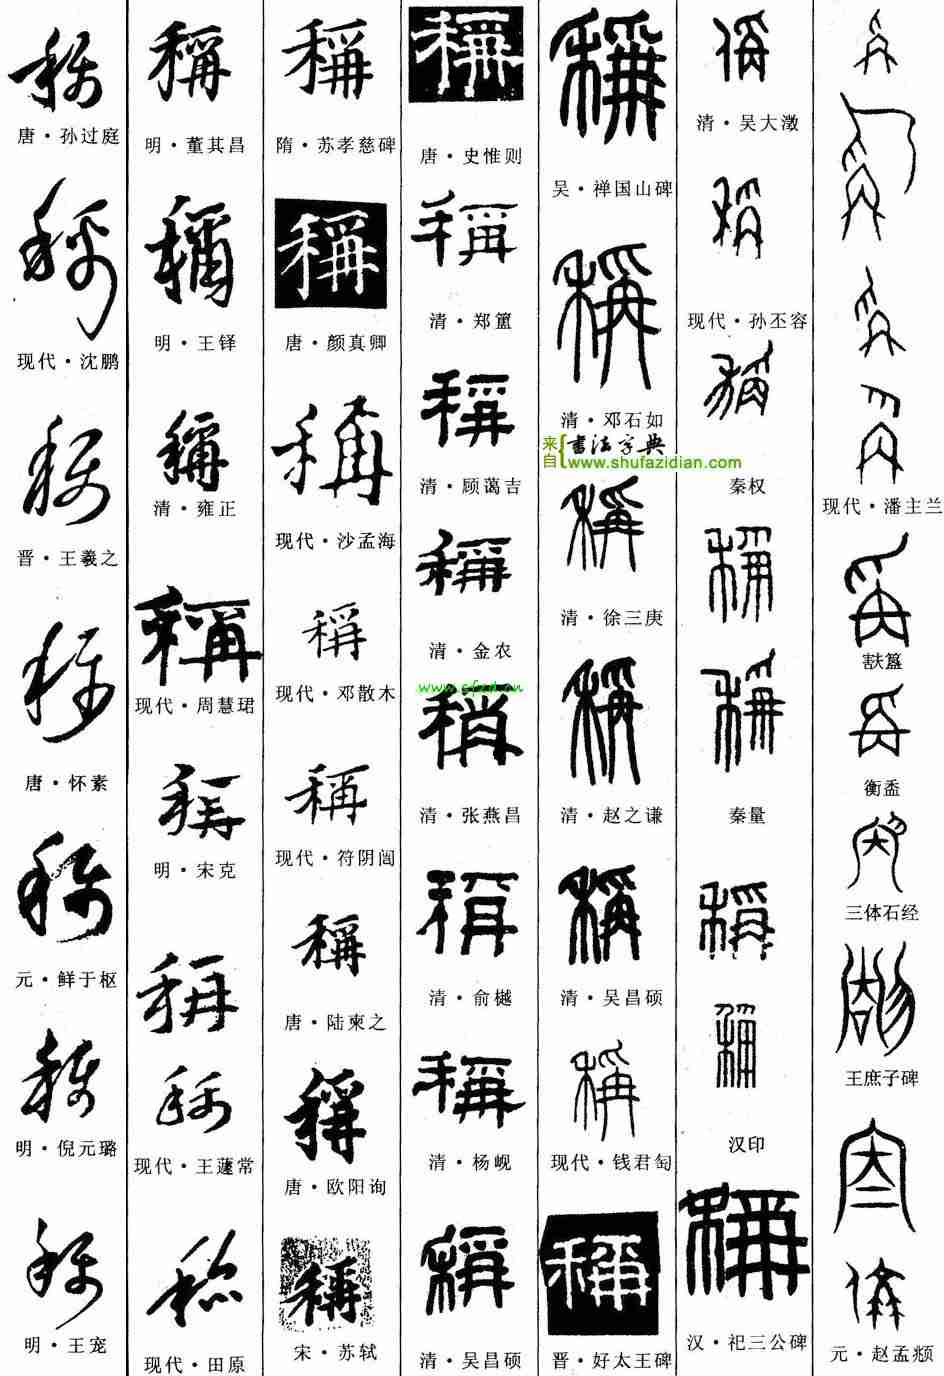 唐·孙过庭
现代·沈鹏
晋·王羲之
唐·怀素
元·鲜于枢
明·倪元璐
明·王宠
稱
明·董其昌
稱
明·王铎
稱
清·雍正
稱
现代·周慧珺
明·宋克
现代·王蘧常
现代·田原
稱
隋·苏孝慈碑
稱
唐·颜真卿
稱
现代·沙孟海
稱
现代·邓散木
稱
现代·符阴闿
稱
唐·陆柬之
稱
唐·欧阳询
稱
宋·苏轼
稱
唐·史惟则
稱
清·郑簠
稱
清·顾蔼吉
稱
清·金农
www.sfzd.cn
稱
清·张燕昌
稱
清·俞樾
稱
清·杨岘
稱
清·吴昌硕
稱
吴·禅国山碑
稱
清·邓石如
来自 书法字典
www.shufazidian.com
稱
清·徐三庚
稱
清·赵之谦
稱
清·吴昌硕
稱
现代·钱君匋
稱
晋·好太王碑
清·吴大澂
现代·孙丕容
稱
秦权
稱
稱
秦量
稱
稱
汉印
稱
汉·祀三公碑
现代·潘主兰
㝬簋
衡盉
三体石经
王庶子碑
元·赵孟頫